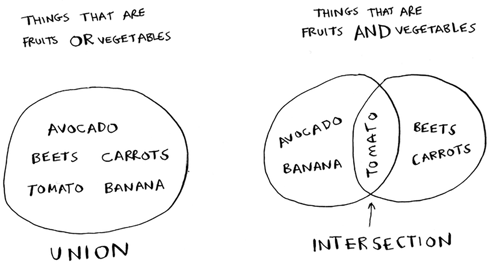 THINGS THAT ARE
FRUITS OR VEGETABLES
AVOCADO
BEETS CARROTS
TOMATO BANANA
UNION
THINGS THAT ARE
FRUITS AND VEGETABLES
AVOCADO
BANANA
TOMATO
BEETS
CARROTS
INTERSECTION